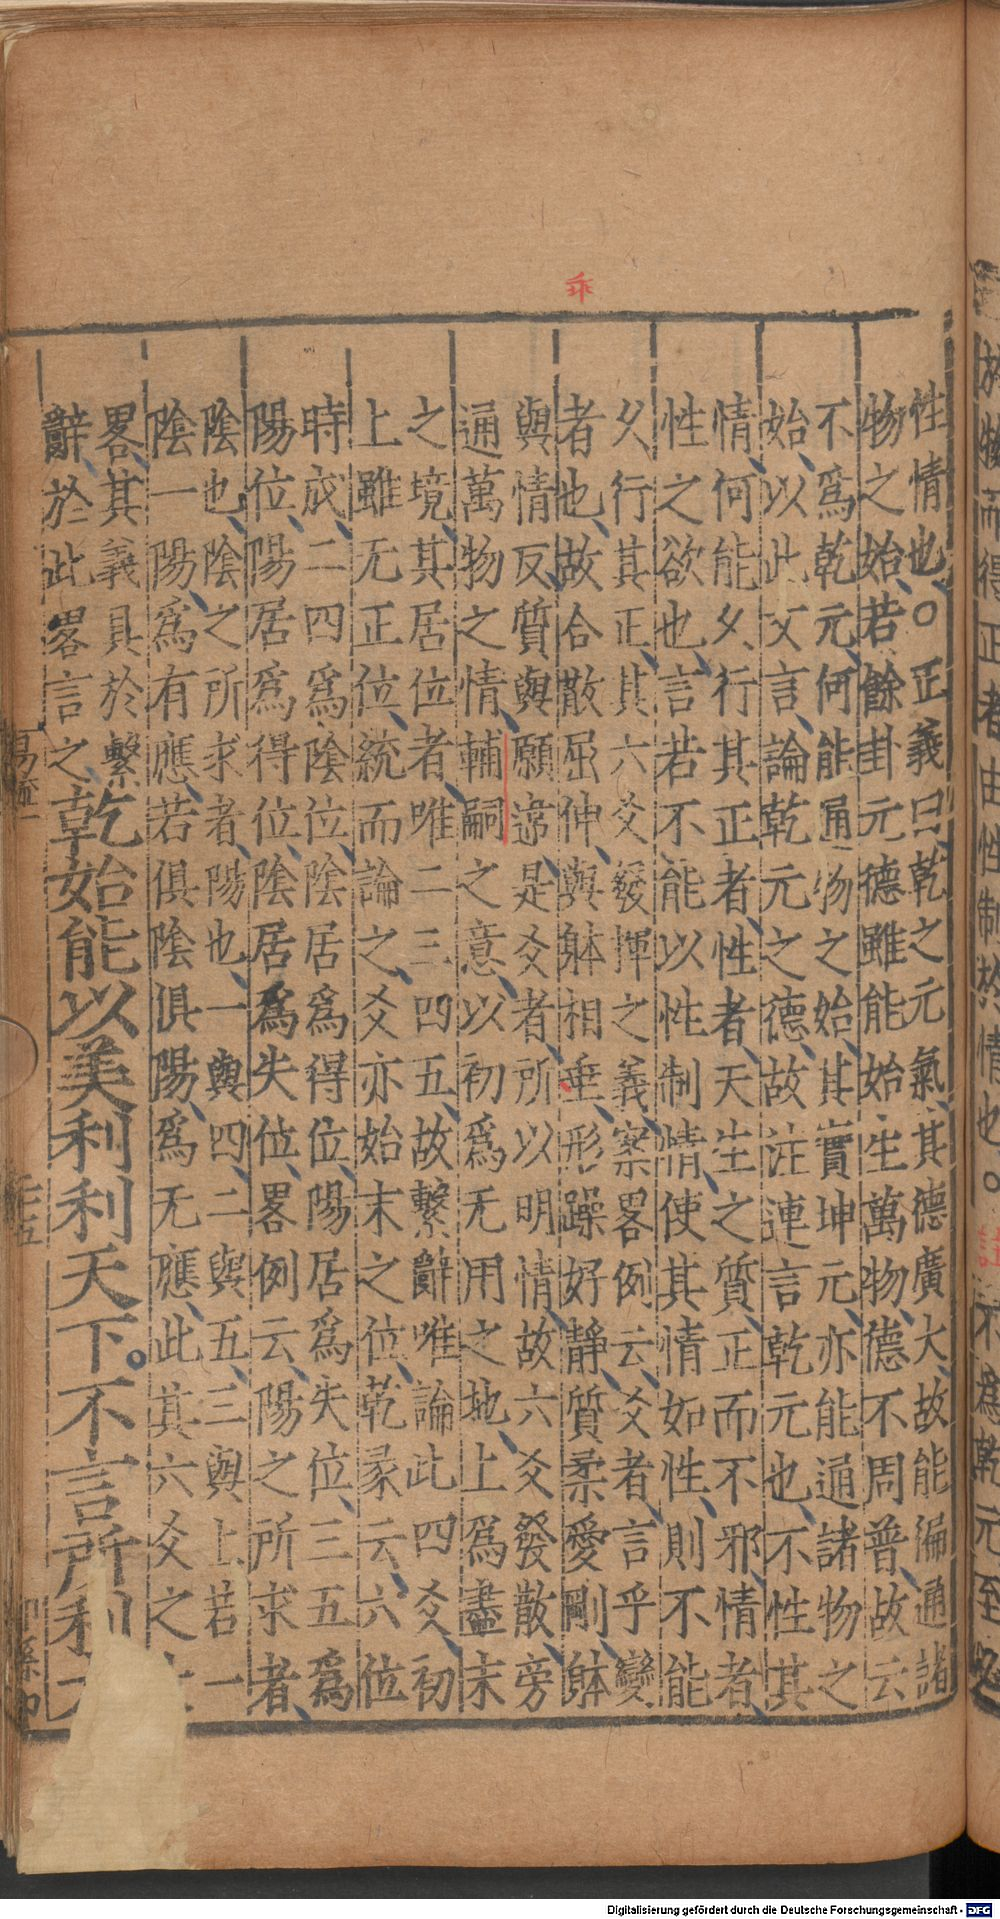 於物而得正者由性制於情也○註不爲乾元至
乖
性情也○正義曰乾之元氣其德廣大故能漏通諸
物之始若餘卦元德雖能始生萬物德不周普故云
不爲乾元何能通物之始其實坤元亦能通諸物之
始以此文言論乾元之德故注連言乾元也不性其
情何能久行其正者性者天生之質正而不邪情者
性之欲也言若不能以性制情使其情如性則不能
久行其正其六爻發揮之義案畧例云爻者言乎變
者也故合散屈伸與躰相垂形躁好静質柔愛剛躰
與情反質與願違是爻者所以明情故六爻發散旁
通萬物之情輔嗣之意以初爲无用之地上爲盡末
之境其居位者唯二三四五故繫辭唯論此四爻初
上雖无正位統而論之爻亦始末之位乾彖云六位
時成二四爲陰位陰居爲得位陽居爲失位三五爲
陽位陽居爲得位陰居爲失位畧例云陽之所求者
陰也陰之所求者陽也一與四二與五三與上若一
陰一陽爲有應若俱陰俱陽爲无應此其六爻之
畧其義具於繫
辭於此畧言之
乾始能以美利利天下。不言所利
Digitalisierung gefördert durch die Deutsche Forschungsgemeinschaft - DFG